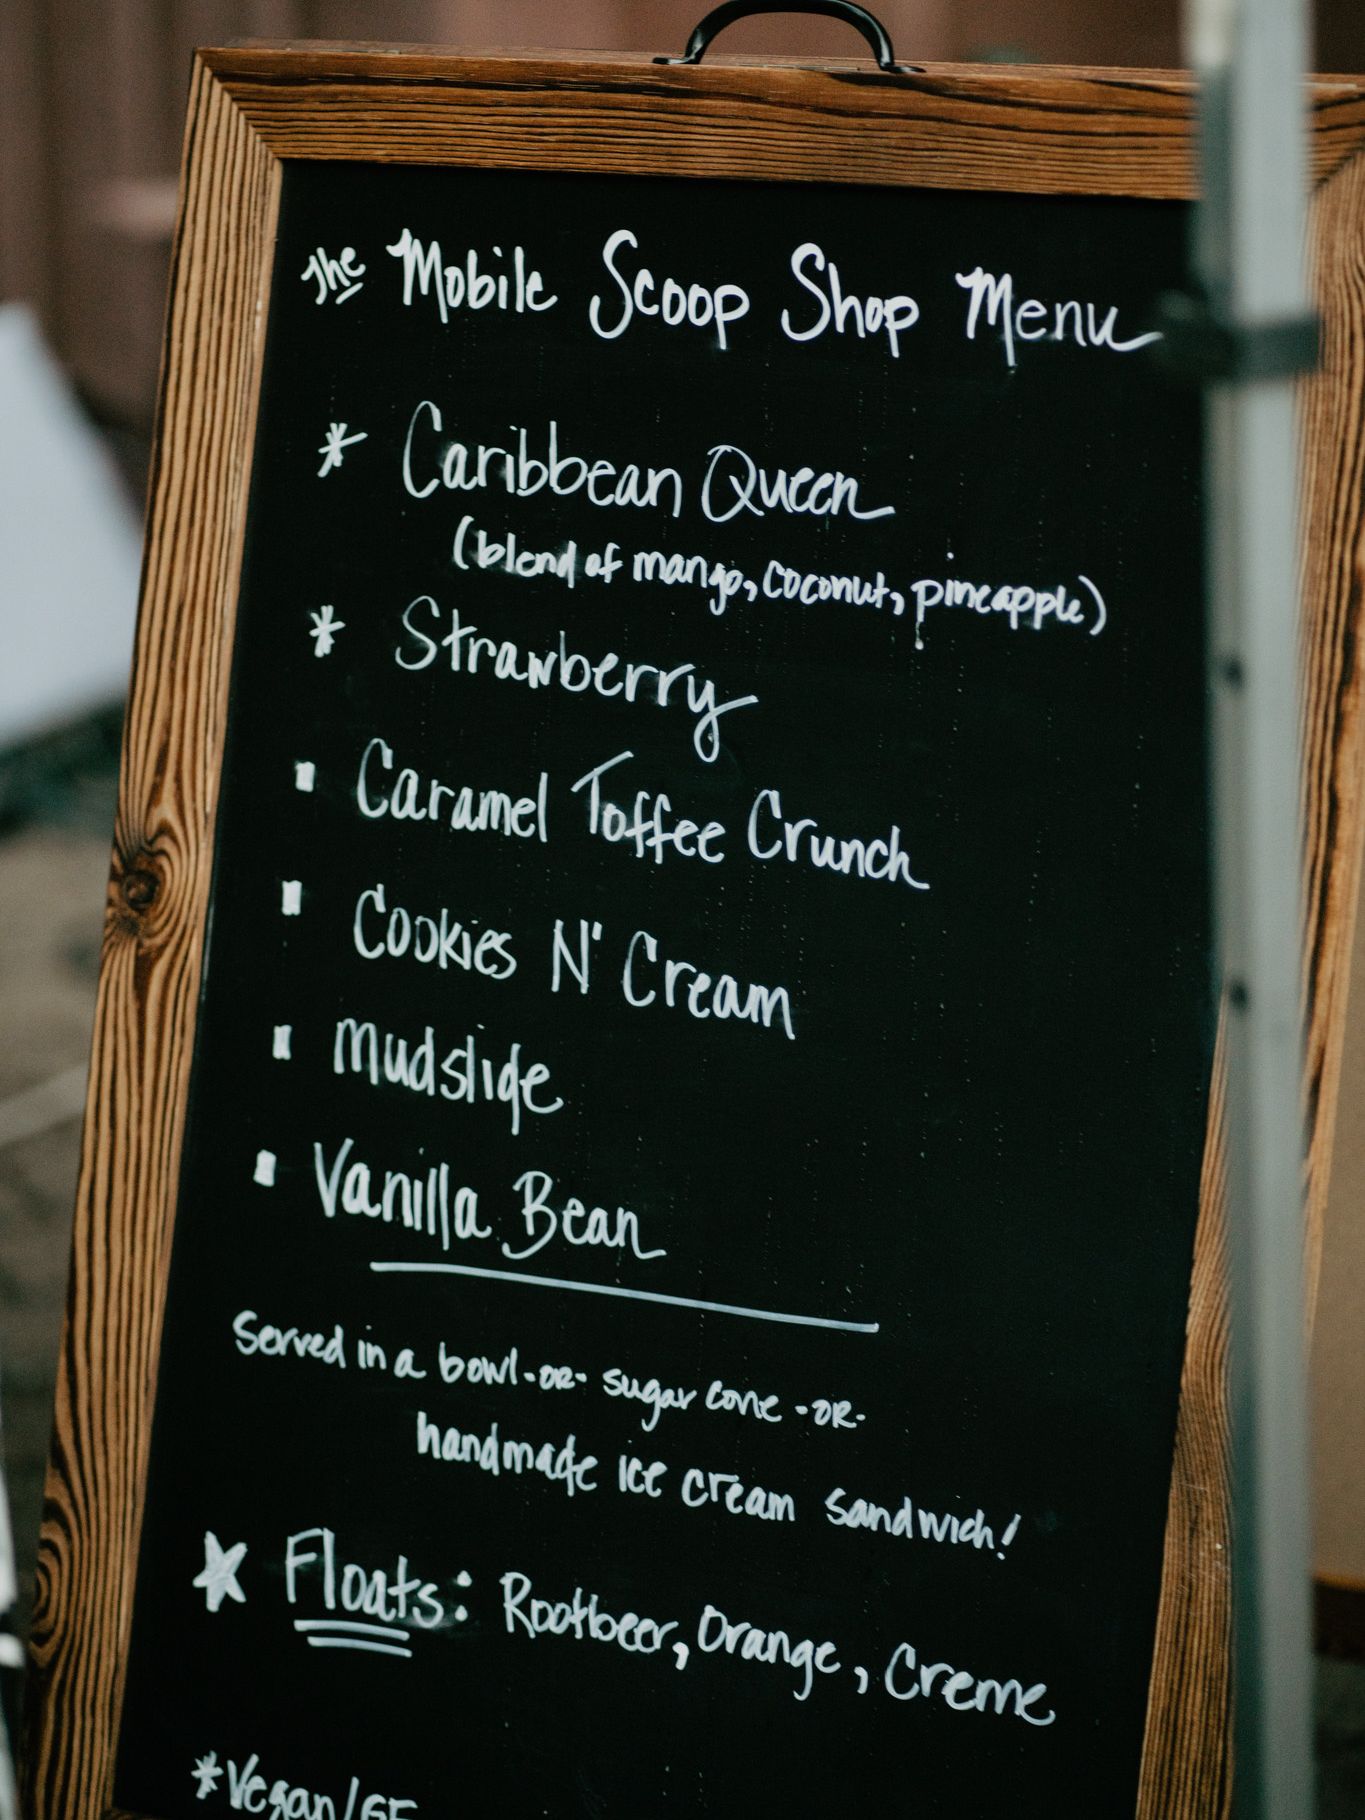 The Mobile Scoop Shop Menu
* Caribbean Queen
(blend of mango, coconut, pineapple)
* Strawberry
▪ Caramel Toffee Crunch
▪ Cookies N' Cream
▪ mudslide
▪ Vanilla Bean
Served in a bowl -OR- sugar cone -OR-
handmade ice cream sandwich!
★ Floats: Rootbeer, Orange, Creme
*Vegan/GF